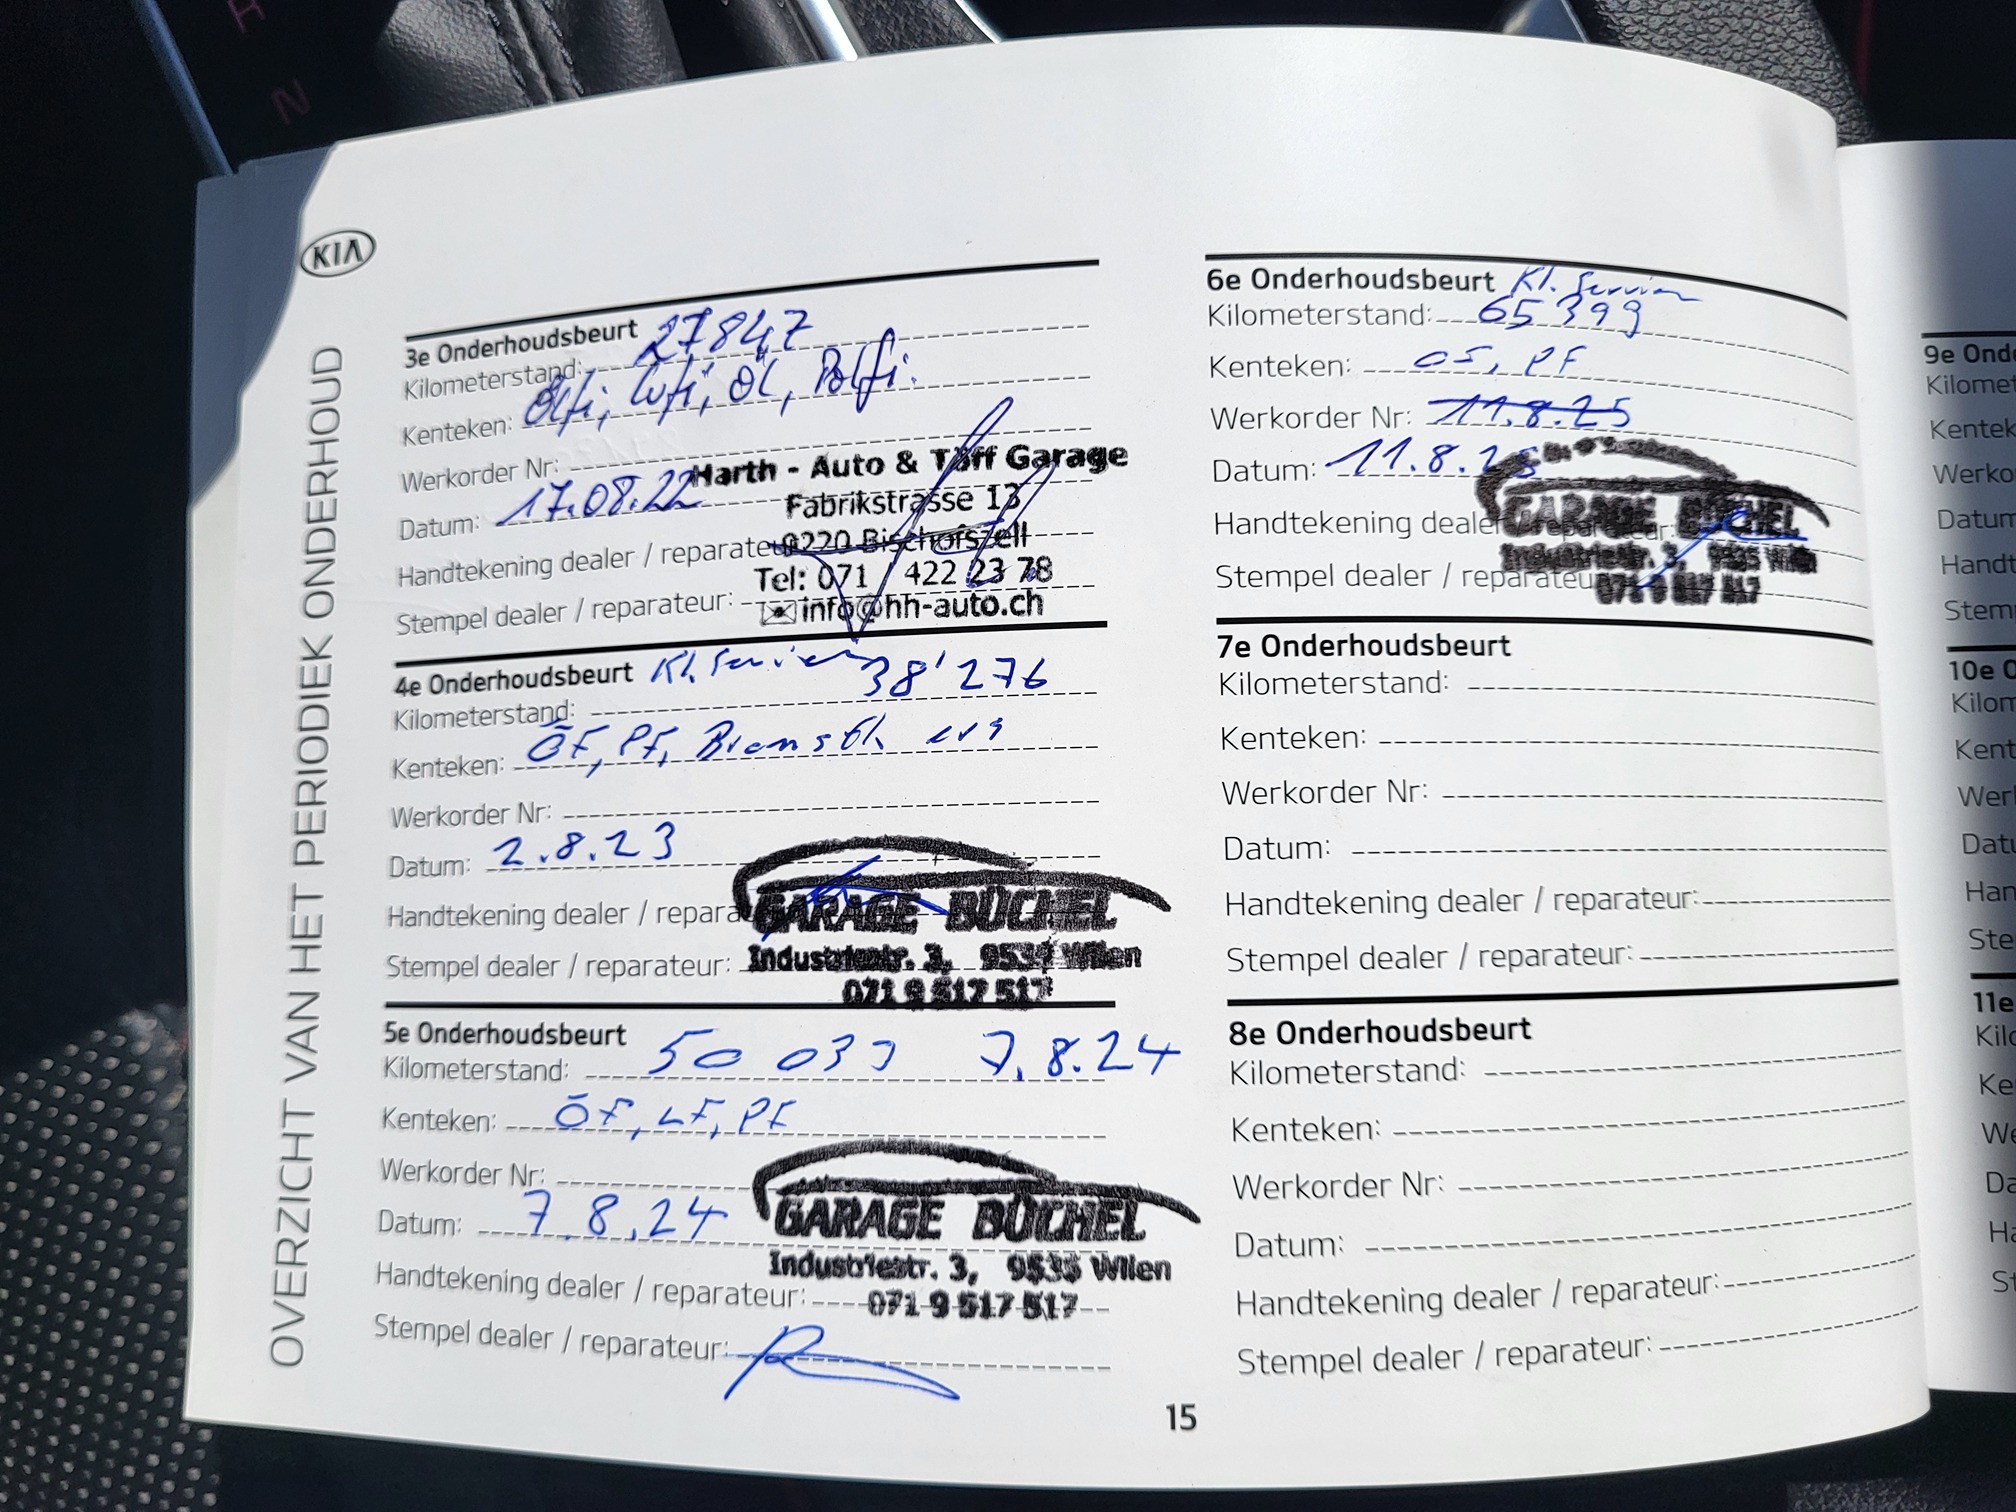 N
KIA
OVERZICHT VAN HET PERIODIEK ONDERHOUD
3e Onderhoudsbeurt
Kilometerstand: 27847
Kenteken: Ölfi, Lufi, Öl, Polfi.
Werkorder Nr:
Datum: 17.08.22
Handtekening dealer / reparateur
Stempel dealer / reparateur:
Harth - Auto & Töff Garage
Fabrikstrasse 13
9220 Bischofszell
Tel: 071 / 422 23 78
info@hh-auto.ch
4e Onderhoudsbeurt Kl. Service
Kilometerstand: 38'276
Kenteken: ÖF, PF, Bremsfl. ers
Werkorder Nr:
Datum: 2.8.23
Handtekening dealer / repara
Stempel dealer / reparateur:
GARAGE BÜCHEL
Industriestr. 3, 9535 Wilen
071 9 517 517
5e Onderhoudsbeurt
Kilometerstand: 50 033 7.8.24
Kenteken: ÖF, LF, PF
Werkorder Nr:
Datum: 7.8.24
Handtekening dealer / reparateur:
Stempel dealer / reparateur:
GARAGE BÜCHEL
Industriestr. 3, 9535 Wilen
071 9 517 517
6e Onderhoudsbeurt Kl. Service
Kilometerstand: 65 399
Kenteken: OS, PF
Werkorder Nr: 11.8.25
Datum: 11.8.25
Handtekening dealer / reparateur:
Stempel dealer / reparateu
GARAGE BÜCHEL
Industriestr. 3, 9535 Wilen
071 9 517 517
7e Onderhoudsbeurt
Kilometerstand:
Kenteken:
Werkorder Nr:
Datum:
Handtekening dealer / reparateur:
Stempel dealer / reparateur:
8e Onderhoudsbeurt
Kilometerstand:
Kenteken:
Werkorder Nr:
Datum:
Handtekening dealer / reparateur:
Stempel dealer / reparateur:
15
9e Onde
Kilomet
Kentek
Werko
Datum
Handt
Stemp
10e O
Kilom
Kent
Werk
Datu
Han
Ste
11e
Kilo
Ke
We
Da
Ha
St